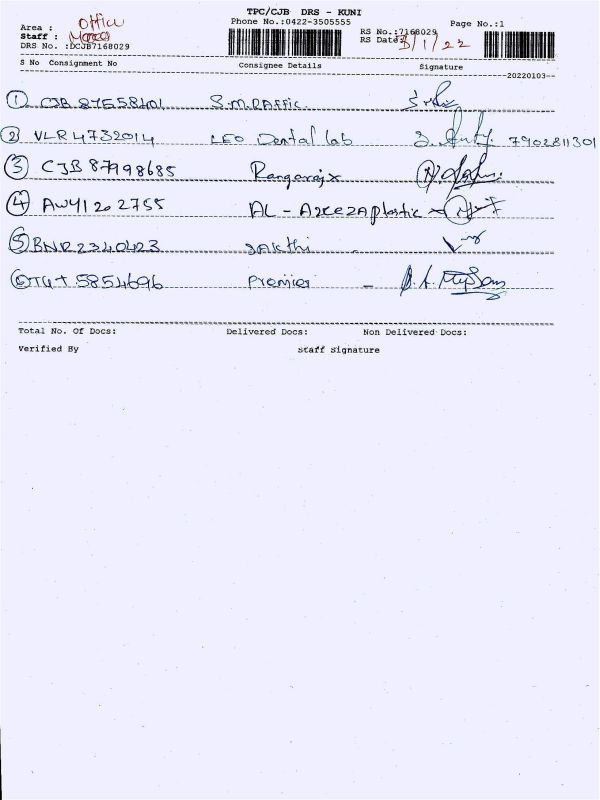 TPC/CJB DRS - KUNI
Area : Office
Phone No.:0422-3505555
Page No.:1
Staff :
RS No.:7168029
DRS No. :DCJB7168029
RS Date: 3/1/22
S No Consignment No Consignee Details Signature
20220103
1 CJB 87658401 S.M.RAFFIC
2 VLR 4732014 LEO Dental lab 7902811301
3 CJB 87998685 Rangaraj
4 plastic
5 BNR2340423 Sakthi
6 5854696 Premier
Total No. Of Docs: Delivered Docs: Non Delivered Docs:
Verified By Staff Signature